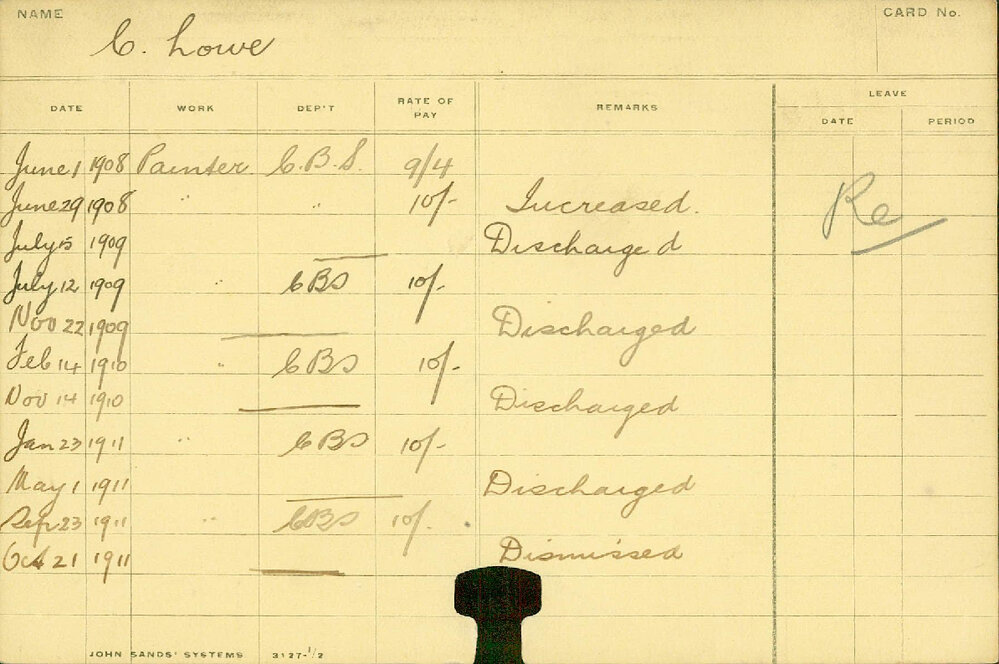 NAME CARD No.
C. Lowe
LEAVE
DATE WORK DEP'T RATE OF PAY REMARKS DATE PERIOD
June 1 1908 Painter C.B.S. 9/4
June 29 1908 " " 10/- Increased.
Re
July 5 1909 Discharged
July 12 1909 " CBS 10/-
Nov 22 1909 Discharged
Feb 14 1910 " CBS 10/-
Nov 14 1910 Discharged
Jan 23 1911 " CBS 10/-
May 1 1911 Discharged
Sep 23 1911 " CBS 10/-
Oct 21 1911 Dismissed
JOHN SANDS' SYSTEMS 3127-1/2